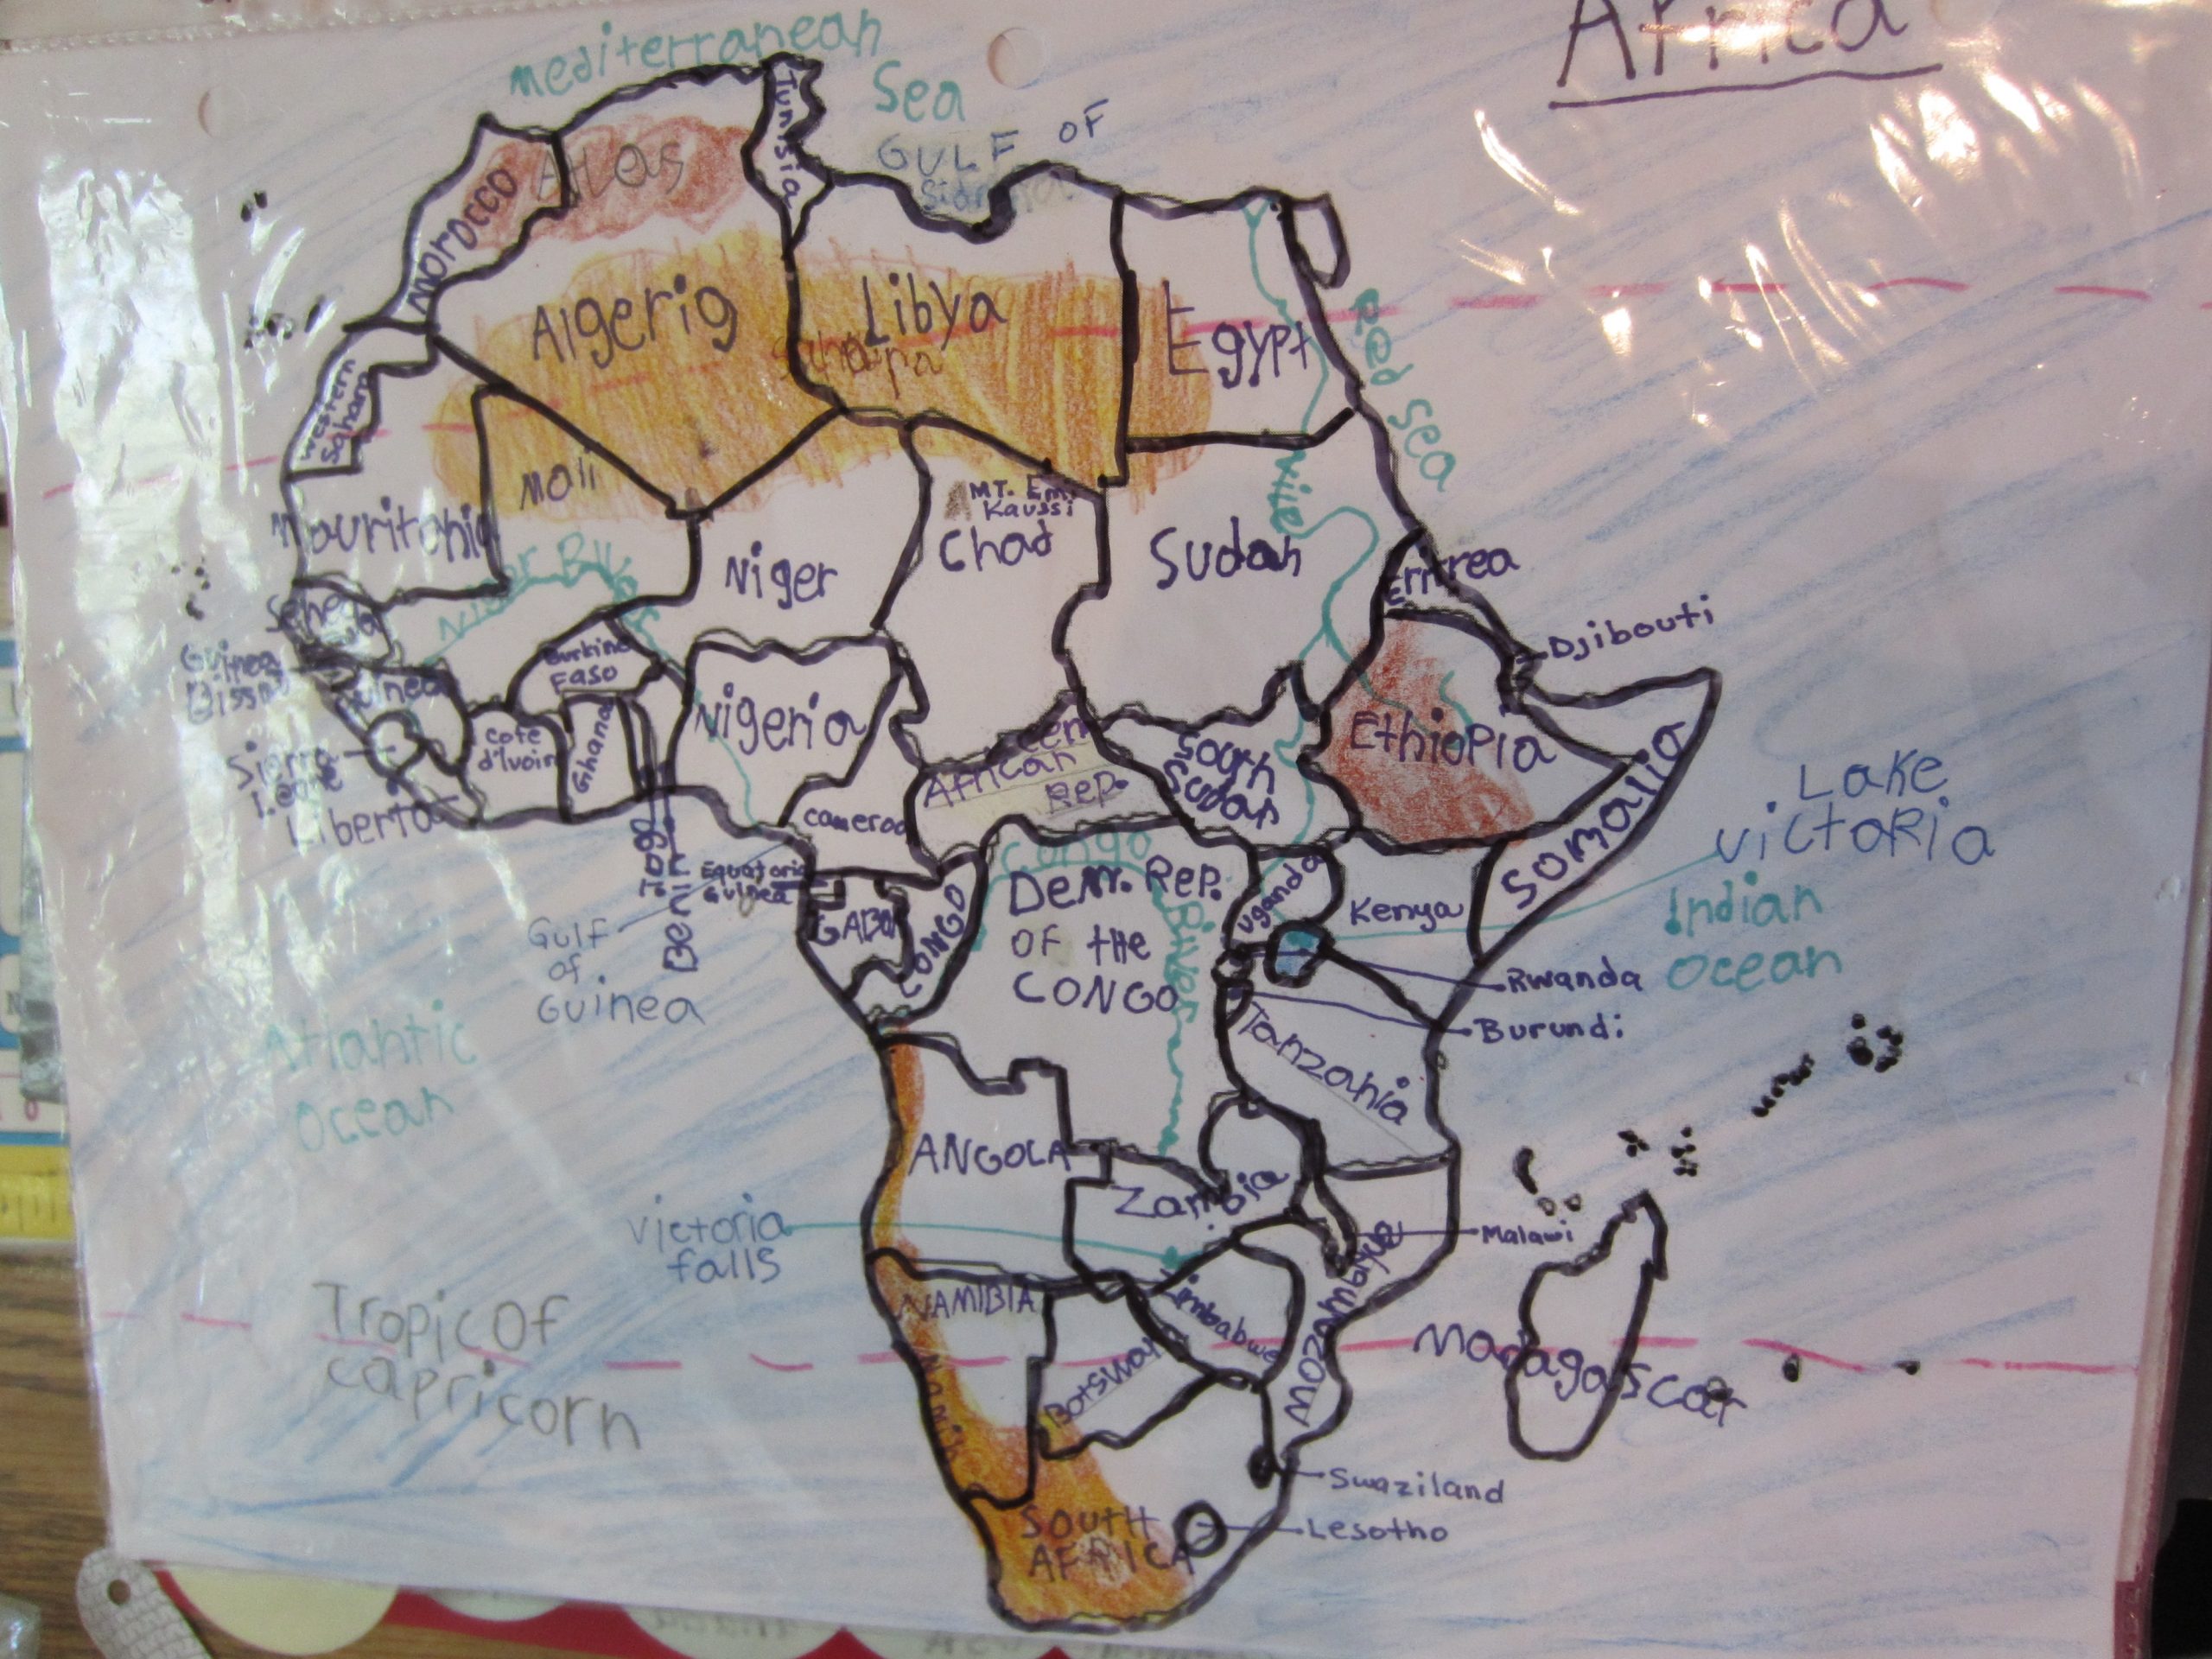 Africa
mediterranean
Sea
GULF OF
Tunisia
Atlas
Morocco
Algeria
Libya
Egypt
Red Sea
Western
Sahara
Mali
MT. Emi
Kaussi
Mauritania
Niger
Chad
Sudan
Nile
Eritrea
Djibouti
Guinea
Bissau
Guinea
Burkina
Faso
Nigeria
Ethiopia
South
Sudan
Somalia
Cote
d'Ivoir
Ghana
Sierra
Leone
Liberia
Togo
Benin
African
Rep.
cameroo
Lake
Victoria
Equatoria
Guinea
Congo
River
Dem. Rep.
OF the
CONGO
Uganda
Kenya
GABON
CONGO
Indian
Ocean
Gulf
of
Guinea
Rwanda
Burundi
Atlantic
Ocean
Tanzania
ANGOLA
Zambia
Malawi
Victoria
falls
NAMIBIA
Zimbabwe
Botswan
Mozambique
Madagascar
Tropic Of
capricorn
Swaziland
SOUTH
AFRICA
Lesotho